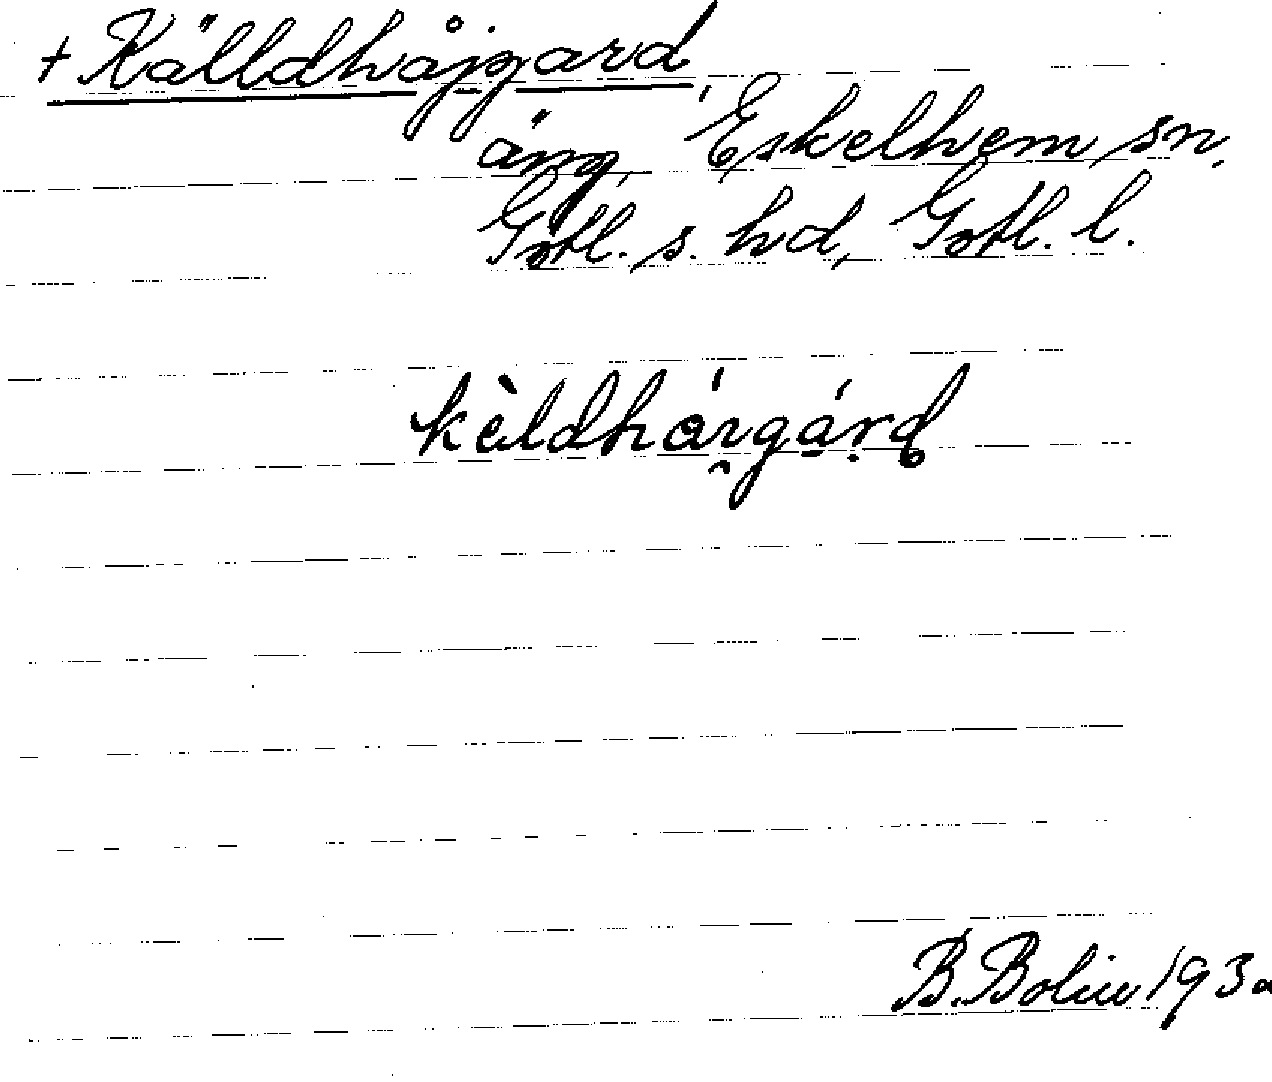 + Källdhåjgard,
äng, Eskelhem sn,
Gotl. s. hd, Gotl. l.
kèldhárgárd
B. Bolin 193